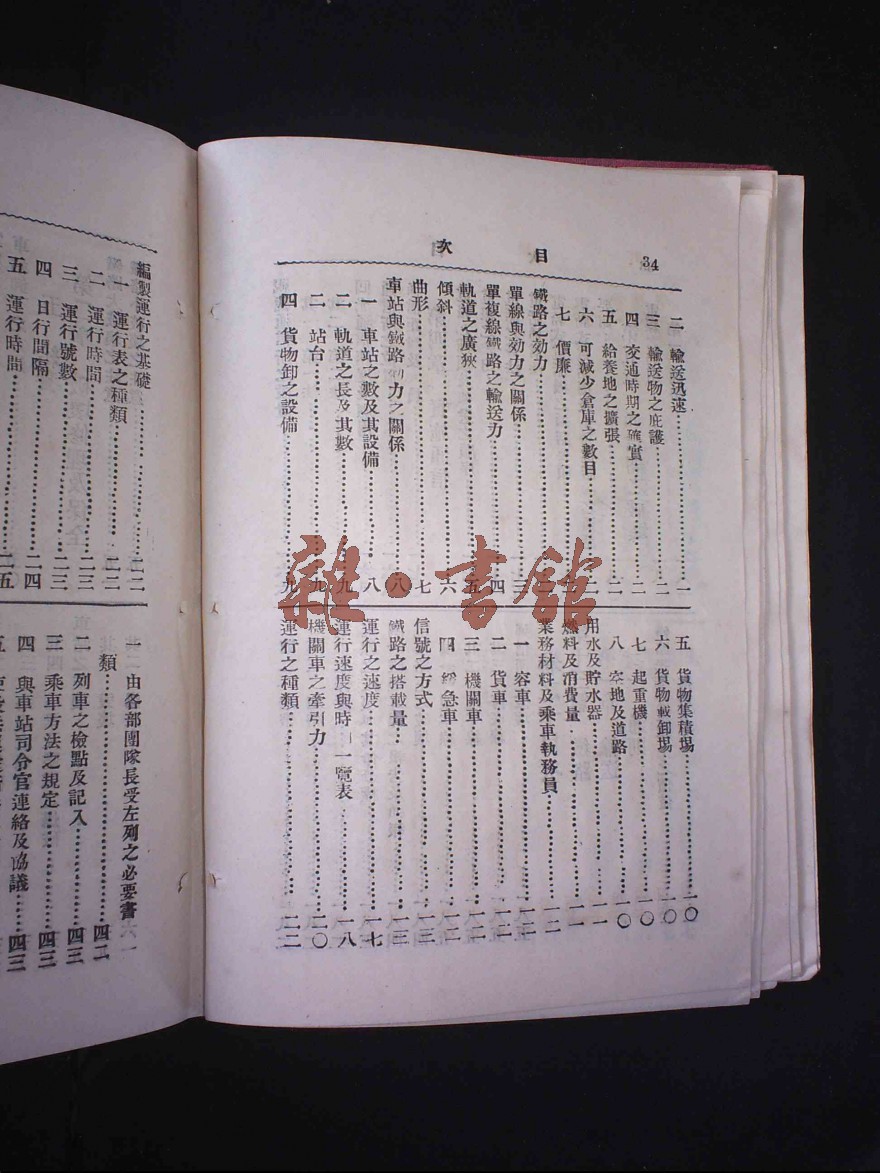 目次
34
二 輸送迅速……一
三 輸送物之庇護……一
四 交通時期之確實……二
五 給養地之擴張……二
六 可減少倉庫之數目……二
七 價廉……
鐵路之効力……
單線與効力之關係……三
單複線鐵路之輸送力……四
軌道之廣狹……五
傾斜……六
曲形……七
車站與鐵路効力之關係……八
一 車站之數及其設備……八
二 軌道之長及其數……九
二 站台……九
四 貨物卸之設備……九
五 貨物集積場……一〇
六 貨物載卸場……一〇
七 起重機……一〇
八 空地及道路……一〇
用水及貯水器……一一
燃料及消費量……一一
業務材料及乘車執務員……一二
一 容車……一二
二 貨車……一二
三 機關車……一二
四 緩急車……一二
信號之方式……一三
鐵路之搭載量……一三
運行之速度……一七
運行速度與時一覽表……一八
機關車之牽引力……二〇
運行之種類……二二
編製運行之基礎……二二
一 運行表之種類……二二
二 運行時間……二三
三 運行號數……二三
四 日行間隔……二四
五 運行時間……二五
一 由各部團隊長受左列之必要書
類……四二
二 列車之檢點及記入……四三
三 乘車方法之規定……四三
四 與車站司令官連絡及協議……四三
五
雜·書館